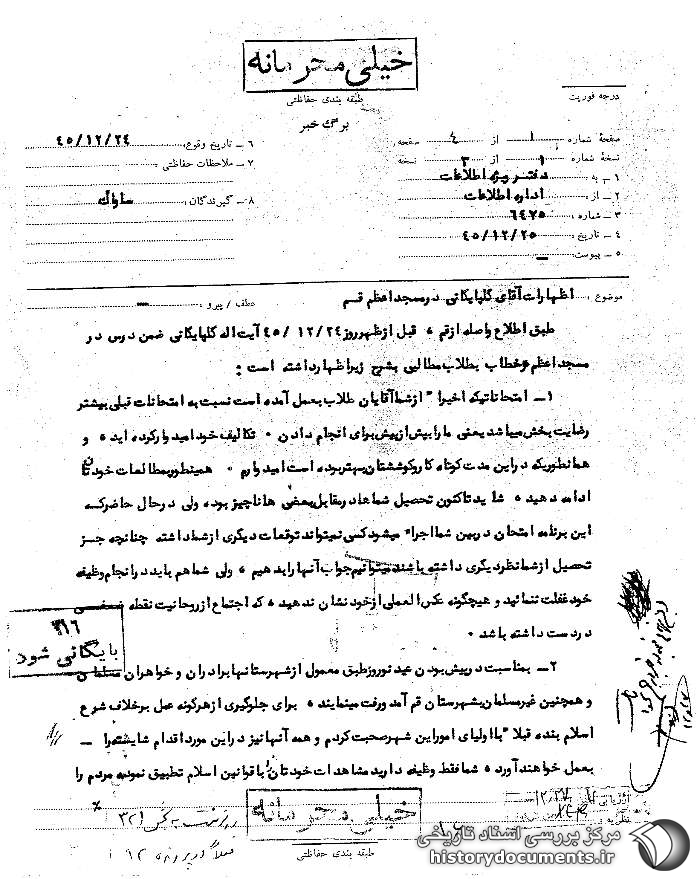 خیلی محرمانه
طبقه بندی حفاظتی
درجه فوریت
برگ خبر
صفحهٔ شماره ۱ از ٤ صفحه
نسخهٔ شماره ۱ از ۳ نسخه
۱ ـ به دفتر ویژه اطلاعات
۲ ـ از: اداره اطلاعات
۳ ـ شماره: ٦٤۲٥
٤ ـ تاریخ: ٤٥/۱۲/۲٥
٥ ـ پیوست: ـ
٦ ـ تاریخ وقوع: ٤٥/۱۲/۲٤
۷ ـ ملاحظات حفاظتی:
۸ ـ گیرندگان: ساواک
موضوع: اظهارات آقای گلپایگانی در مسجد اعظم قم
عطف / پیرو: ـ
طبق اطلاع واصله از قم ، قبل از ظهر روز ۲٤/ ۱۲/ ٤٥ آیت اله گلپایگانی ضمن درس در
مسجد اعظم و خطاب بطلاب مطالبی بشرح زیر اظهار داشته است :
۱ـ امتحاناتیکه اخیرا" از شما آقایان طلاب بعمل آمده است نسبت به امتحانات قبلی بیشتر
رضایت بخش میباشد یعنی ما را بیش از پیش برای انجام دادن ٠ تکالیف خود امیدوار کرده اید ، و
همانطوریکه در این مدت کوتاه کار و کوششتان بهتر بوده است امیدوارم ٠ همینطور بمطالعات خودتان
ادامه دهید ، شاید تاکنون تحصیل شماها در مقابل بعضی ها ناچیز بود، ولی در حال حاضر که
این برنامه امتحان در بین شما اجرا" میشود کسی نمیتواند توقعات دیگری از شما داشته چنانچه جز
تحصیل از شما نظر دیگری داشته باشند میتوانیم جواب آنها را بدهیم ، ولی شما هم باید در انجام وظیفه
خود غفلت ننمائید و هیچگونه عکس العملی از خود نشان ندهید ، که اجتماع از روحانیت نقطه ضعفی
در دست داشته باشد ٠
۲ـ بمناسبت در پیش بودن عید نوروز طبق معمول از شهرستانها برادران و خواهران مسلمان
و همچنین غیر مسلمان بشهرستان قم آمد و رفت مینمایند ، برای جلوگیری از هر گونه عمل برخلاف شرع
اسلام بنده قبلا" با اولیای امور این شهر صحبت کردم و همه آنها نیز در این مورد اقدام شایسته را ـ
بعمل خواهند آورد ، شما فقط وظیفه دارید مشاهدات خودتان را با قوانین اسلام تطبیق نموده مردم را
۳۱٦
بایگانی شود
خیلی محرمانه
طبقه بندی حفاظتی
مرکز بررسی اسناد تاریخی
historydocuments.ir